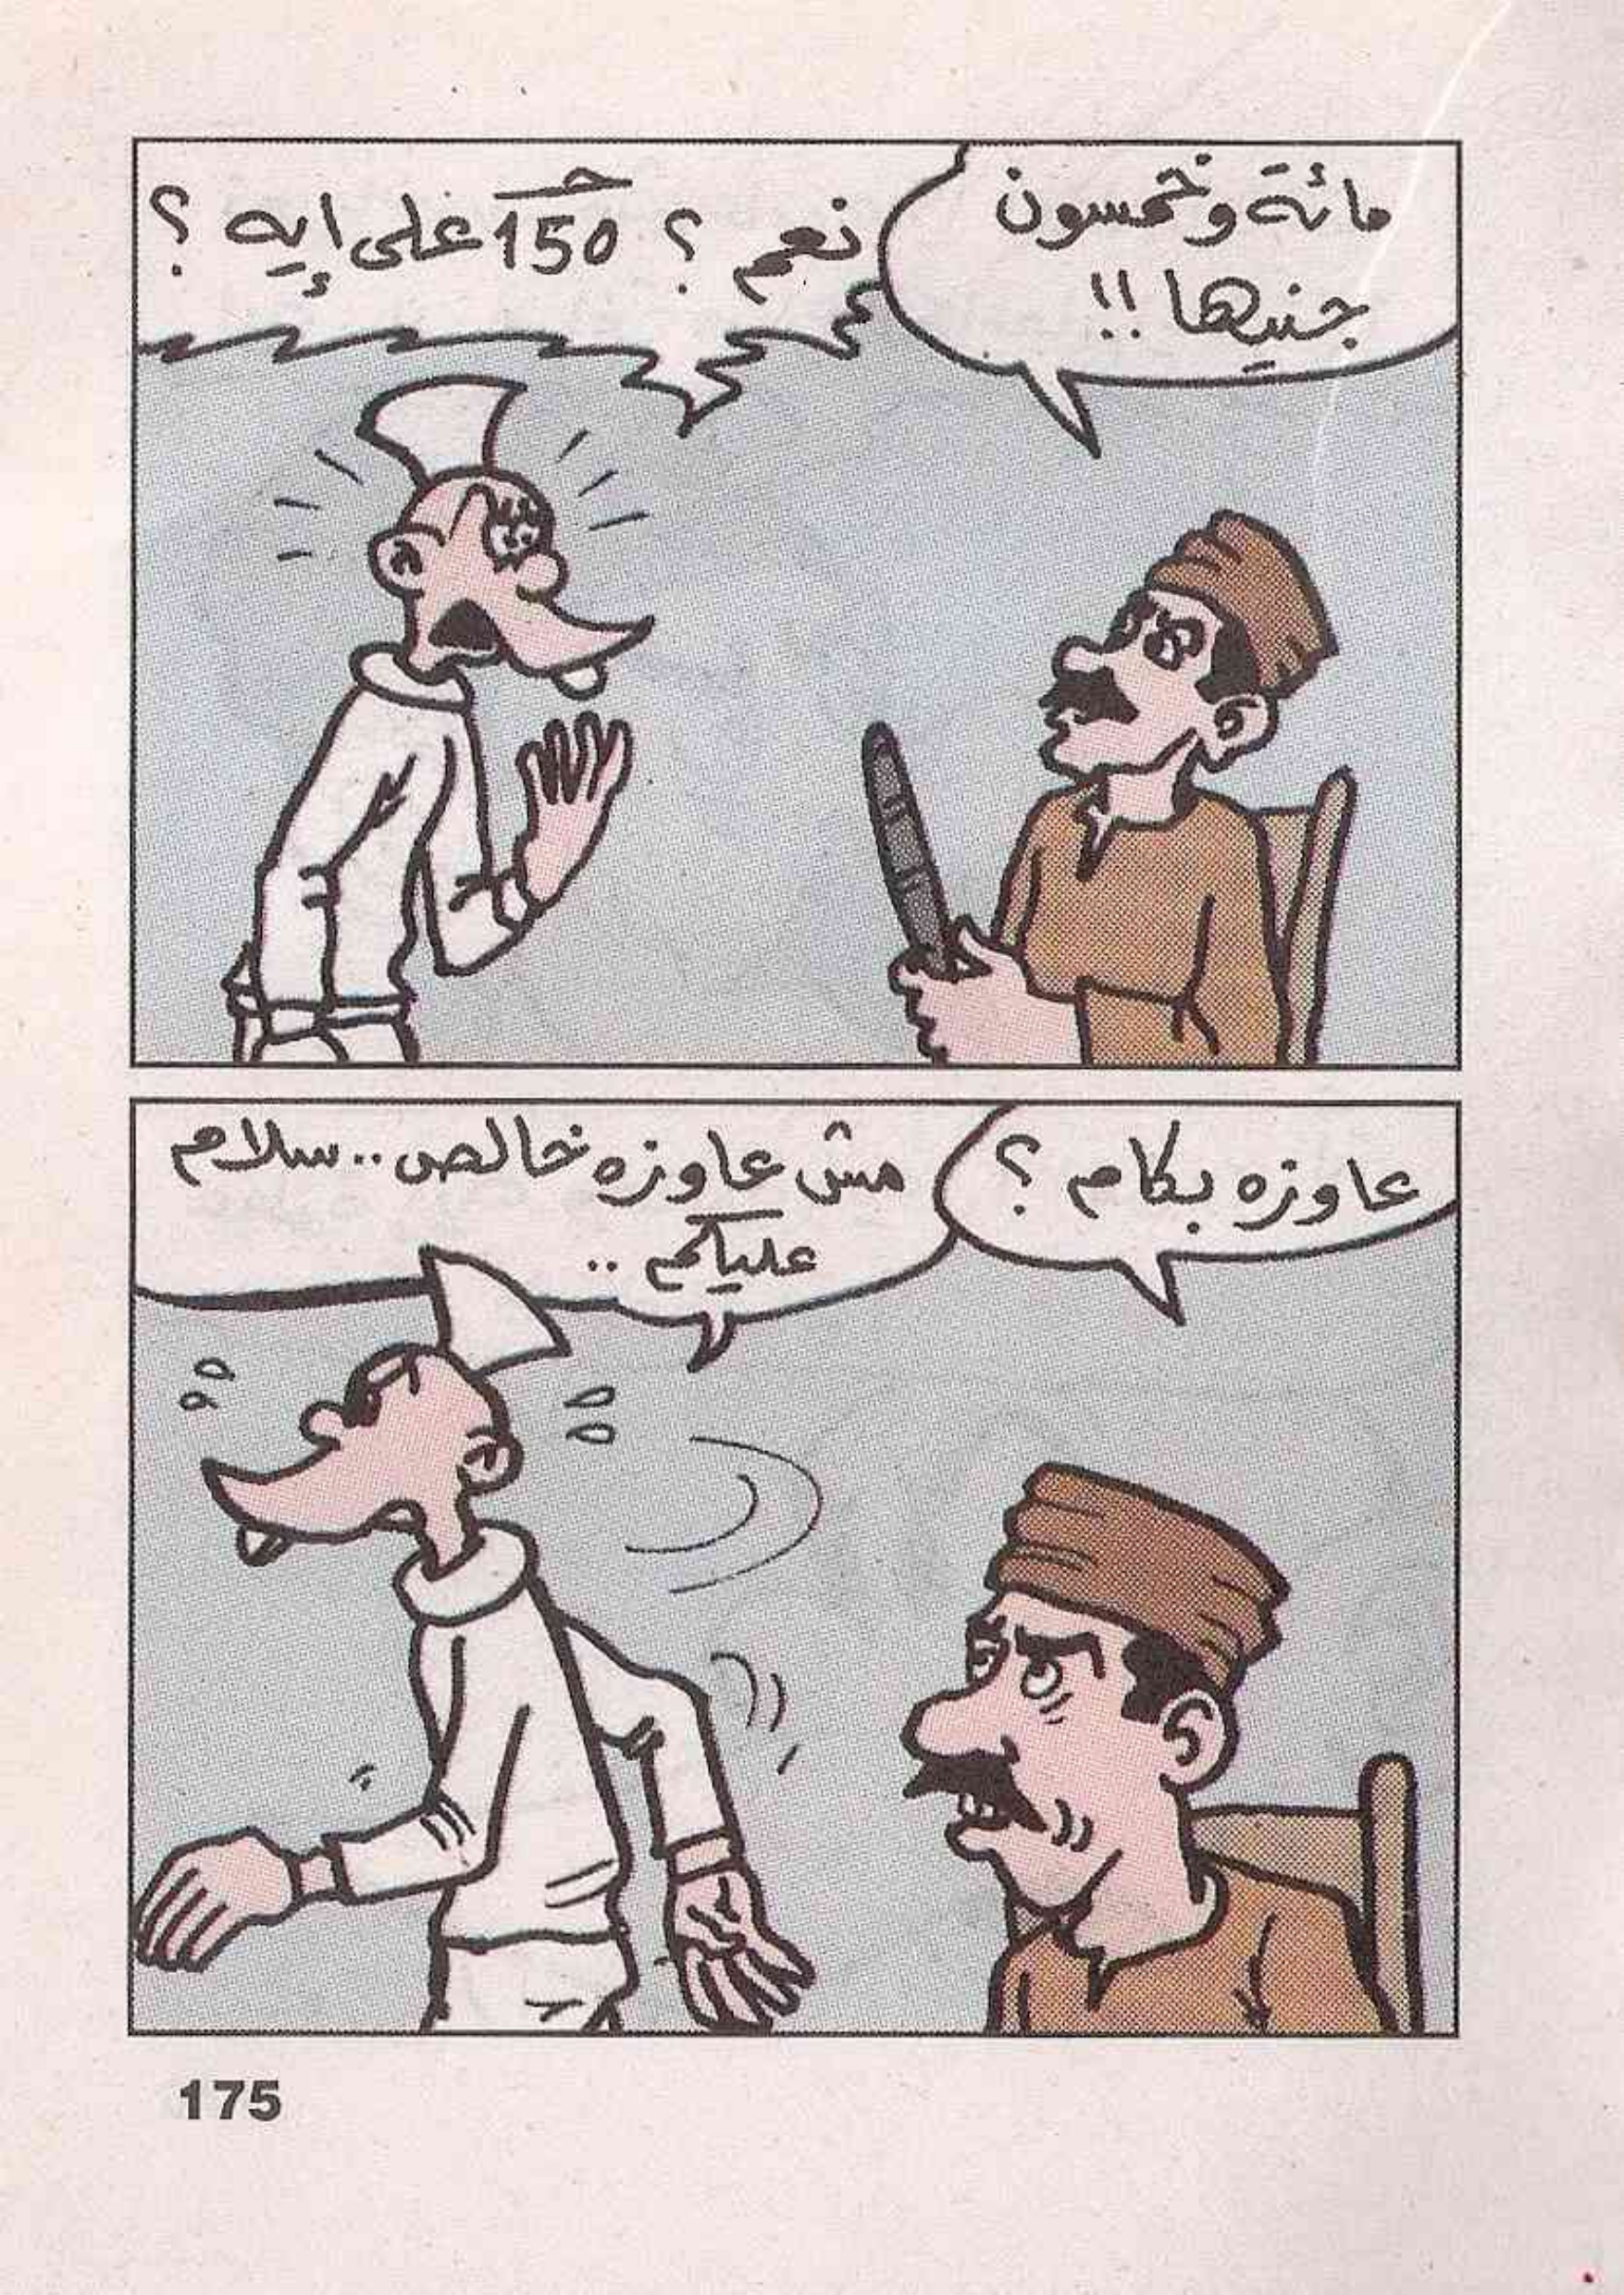 مائة وخمسون
جنيها!!
نعم؟ 150جـ على إيه؟
عاوزه بكام؟
مش عاوزه خالص.. سلام
عليكم..
175